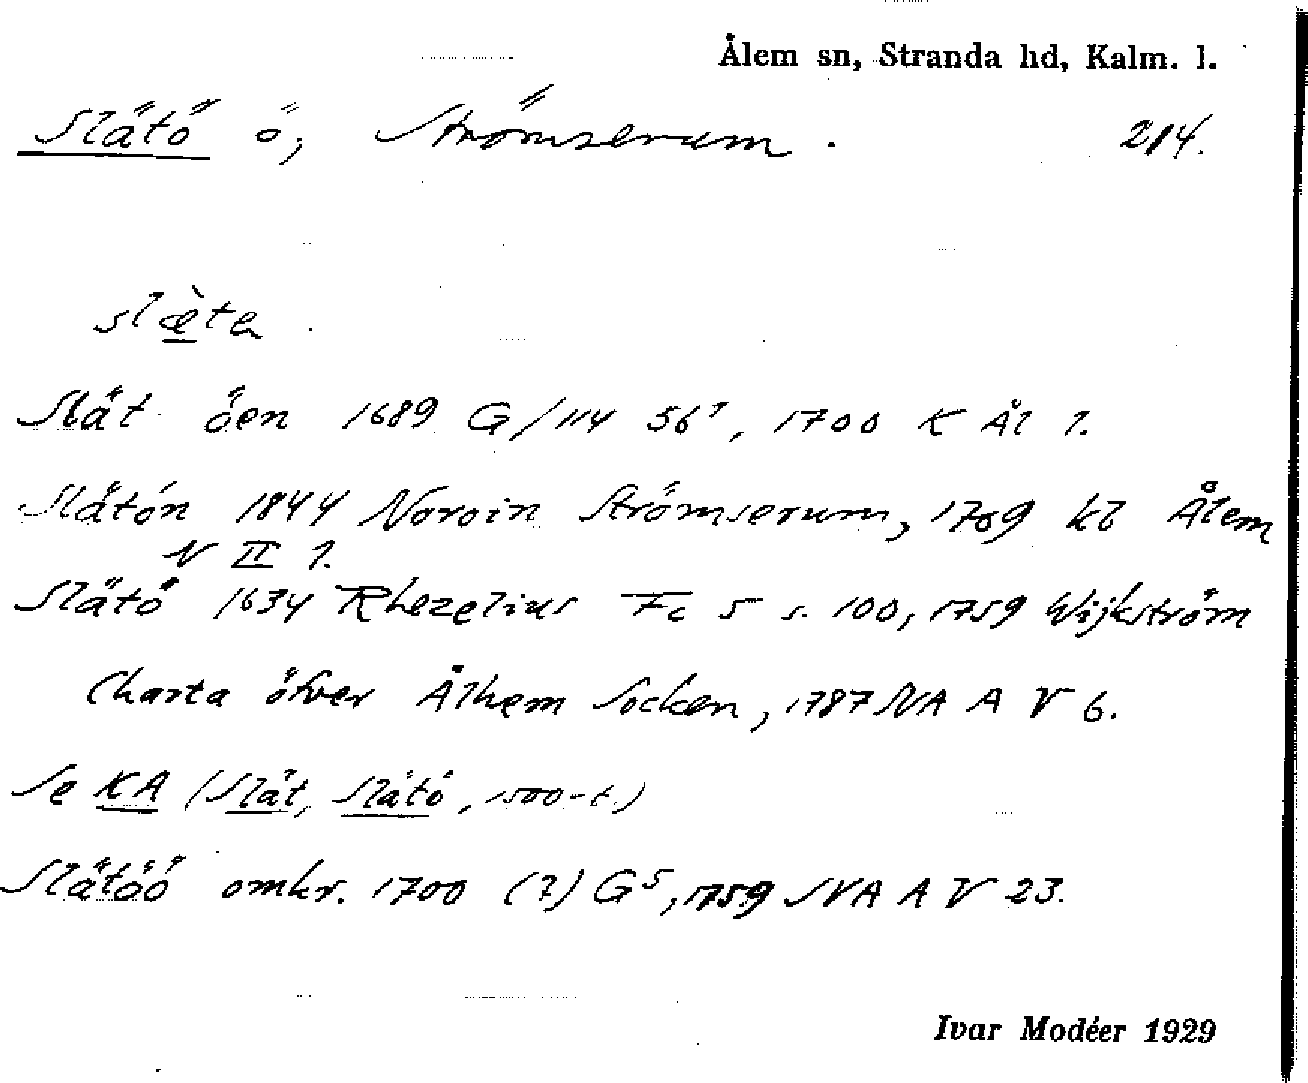 Ålem sn, Stranda hd, Kalm. l.
Slätö ö, Strömserum. 214.
slæ̀ta
Slät öen 1689 G/114 56¹, 1700 K Ål 1.
Slätön 1844 Noroin Strömserum, 1789 kl Ålem
N II 1.
Slätö 1634 Rhezelius Fc 5 s. 100, 1759 Wijkström
Charta öfver Ålhem Socken, 1787 SVA A V 6.
Se KA (Slät, Slätö, 1500-t.)
Slätöö omkr. 1700 (?) G⁵, 1759 SVA A V 23.
Ivar Modéer 1929